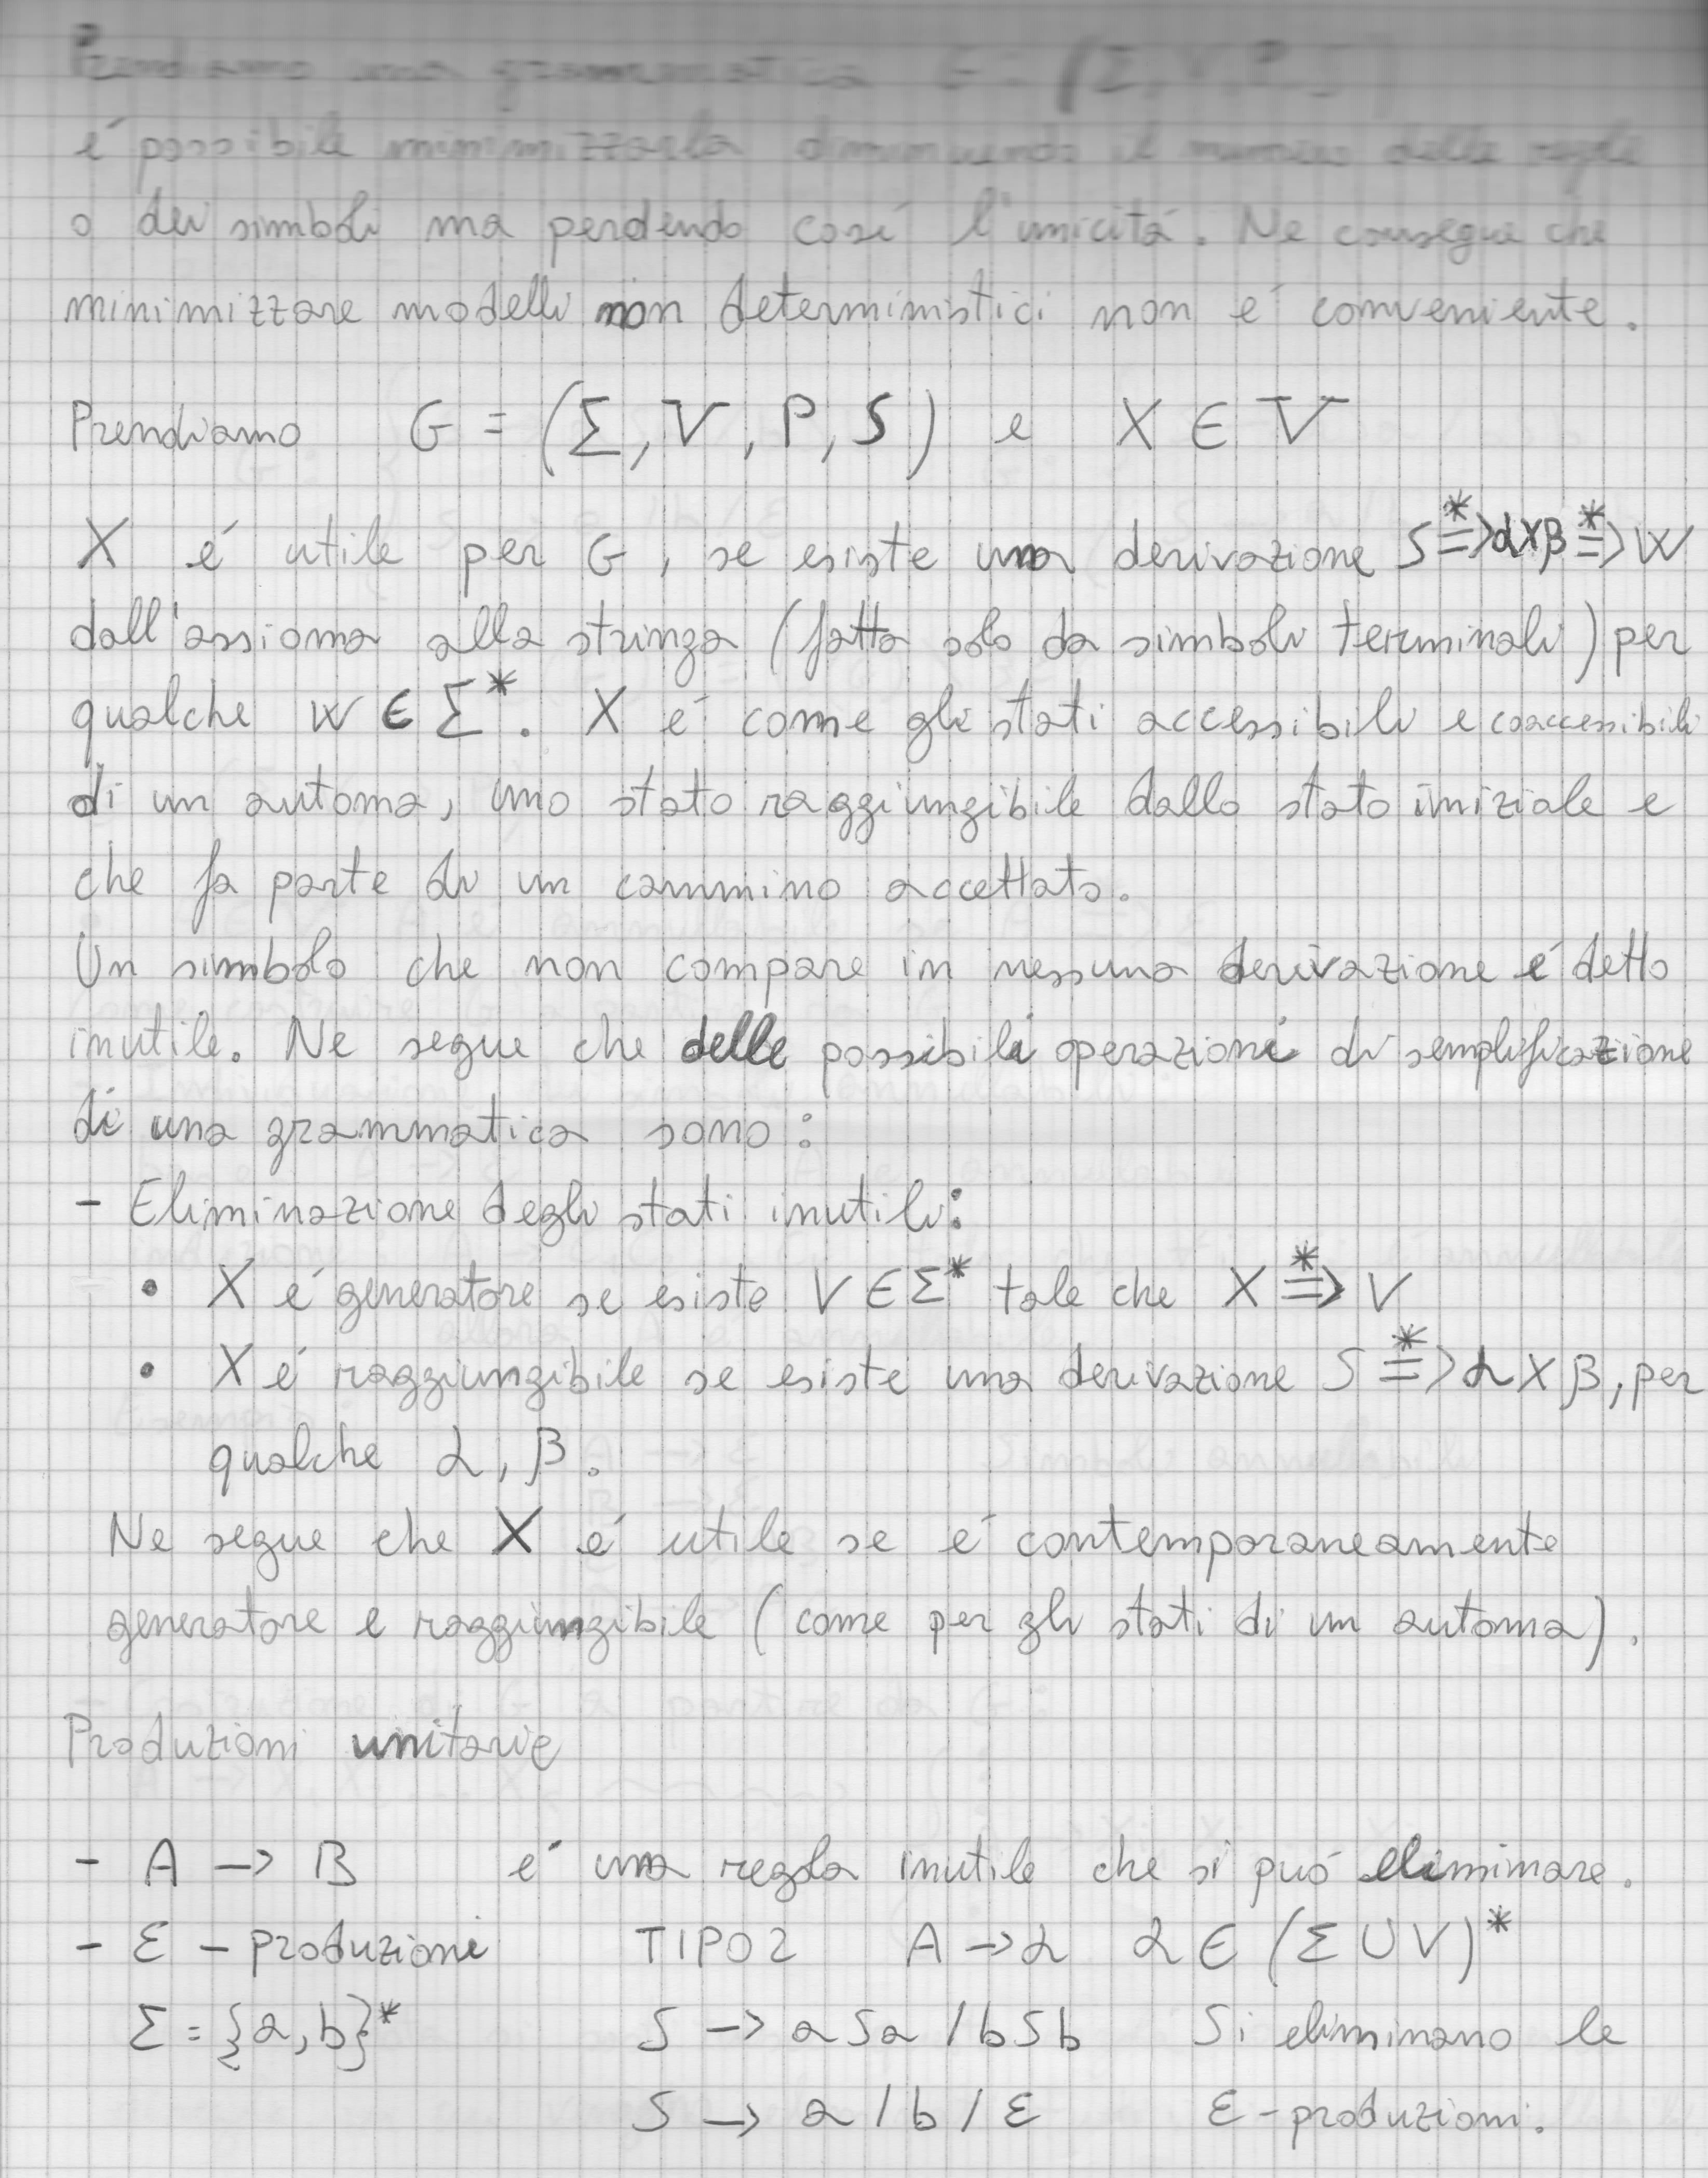 Prendiamo una grammatica G = (Σ, V, P, S)
é possibile minimizzarla diminuendo il numero delle regole
o dei simboli ma perdendo cosí l'unicitá. Ne consegue che
minimizzare modelli non deterministici non é conveniente.
Prendiamo G = (Σ, V, P, S) e X ∈ V
X é utile per G, se esiste una derivazione S =*> αXβ =*> W
dall'assioma alla stringa (fatta solo da simboli terminali) per
qualche w ∈ Σ*. X é come gli stati accessibili e coaccessibili
di un automa, uno stato raggiungibile dallo stato iniziale e
che fa parte di un cammino accettato.
Un simbolo che non compare in nessuna derivazione é detto
inutile. Ne segue che delle possibili operazioni di semplificazione
di una grammatica sono:
- Eliminazione degli stati inutili:
• X é generatore se esiste V ∈ Σ* tale che X =*> V
• X é raggiungibile se esiste una derivazione S =*> αXβ, per
qualche α, β.
Ne segue che X é utile se é contemporaneamente
generatore e raggiungibile (come per gli stati di un automa).
Produzioni unitarie
- A -> B é una regola inutile che si puó eliminare.
- ε - produzioni TIPO 2 A -> α α ∈ (Σ ∪ V)*
Σ = {a, b}* S -> aSa / bSb Si eliminano le
S -> a / b / ε ε - produzioni.